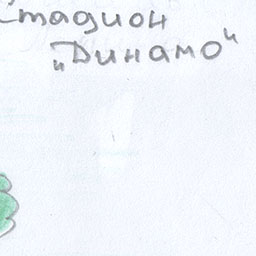 Стадион
„Динамо“